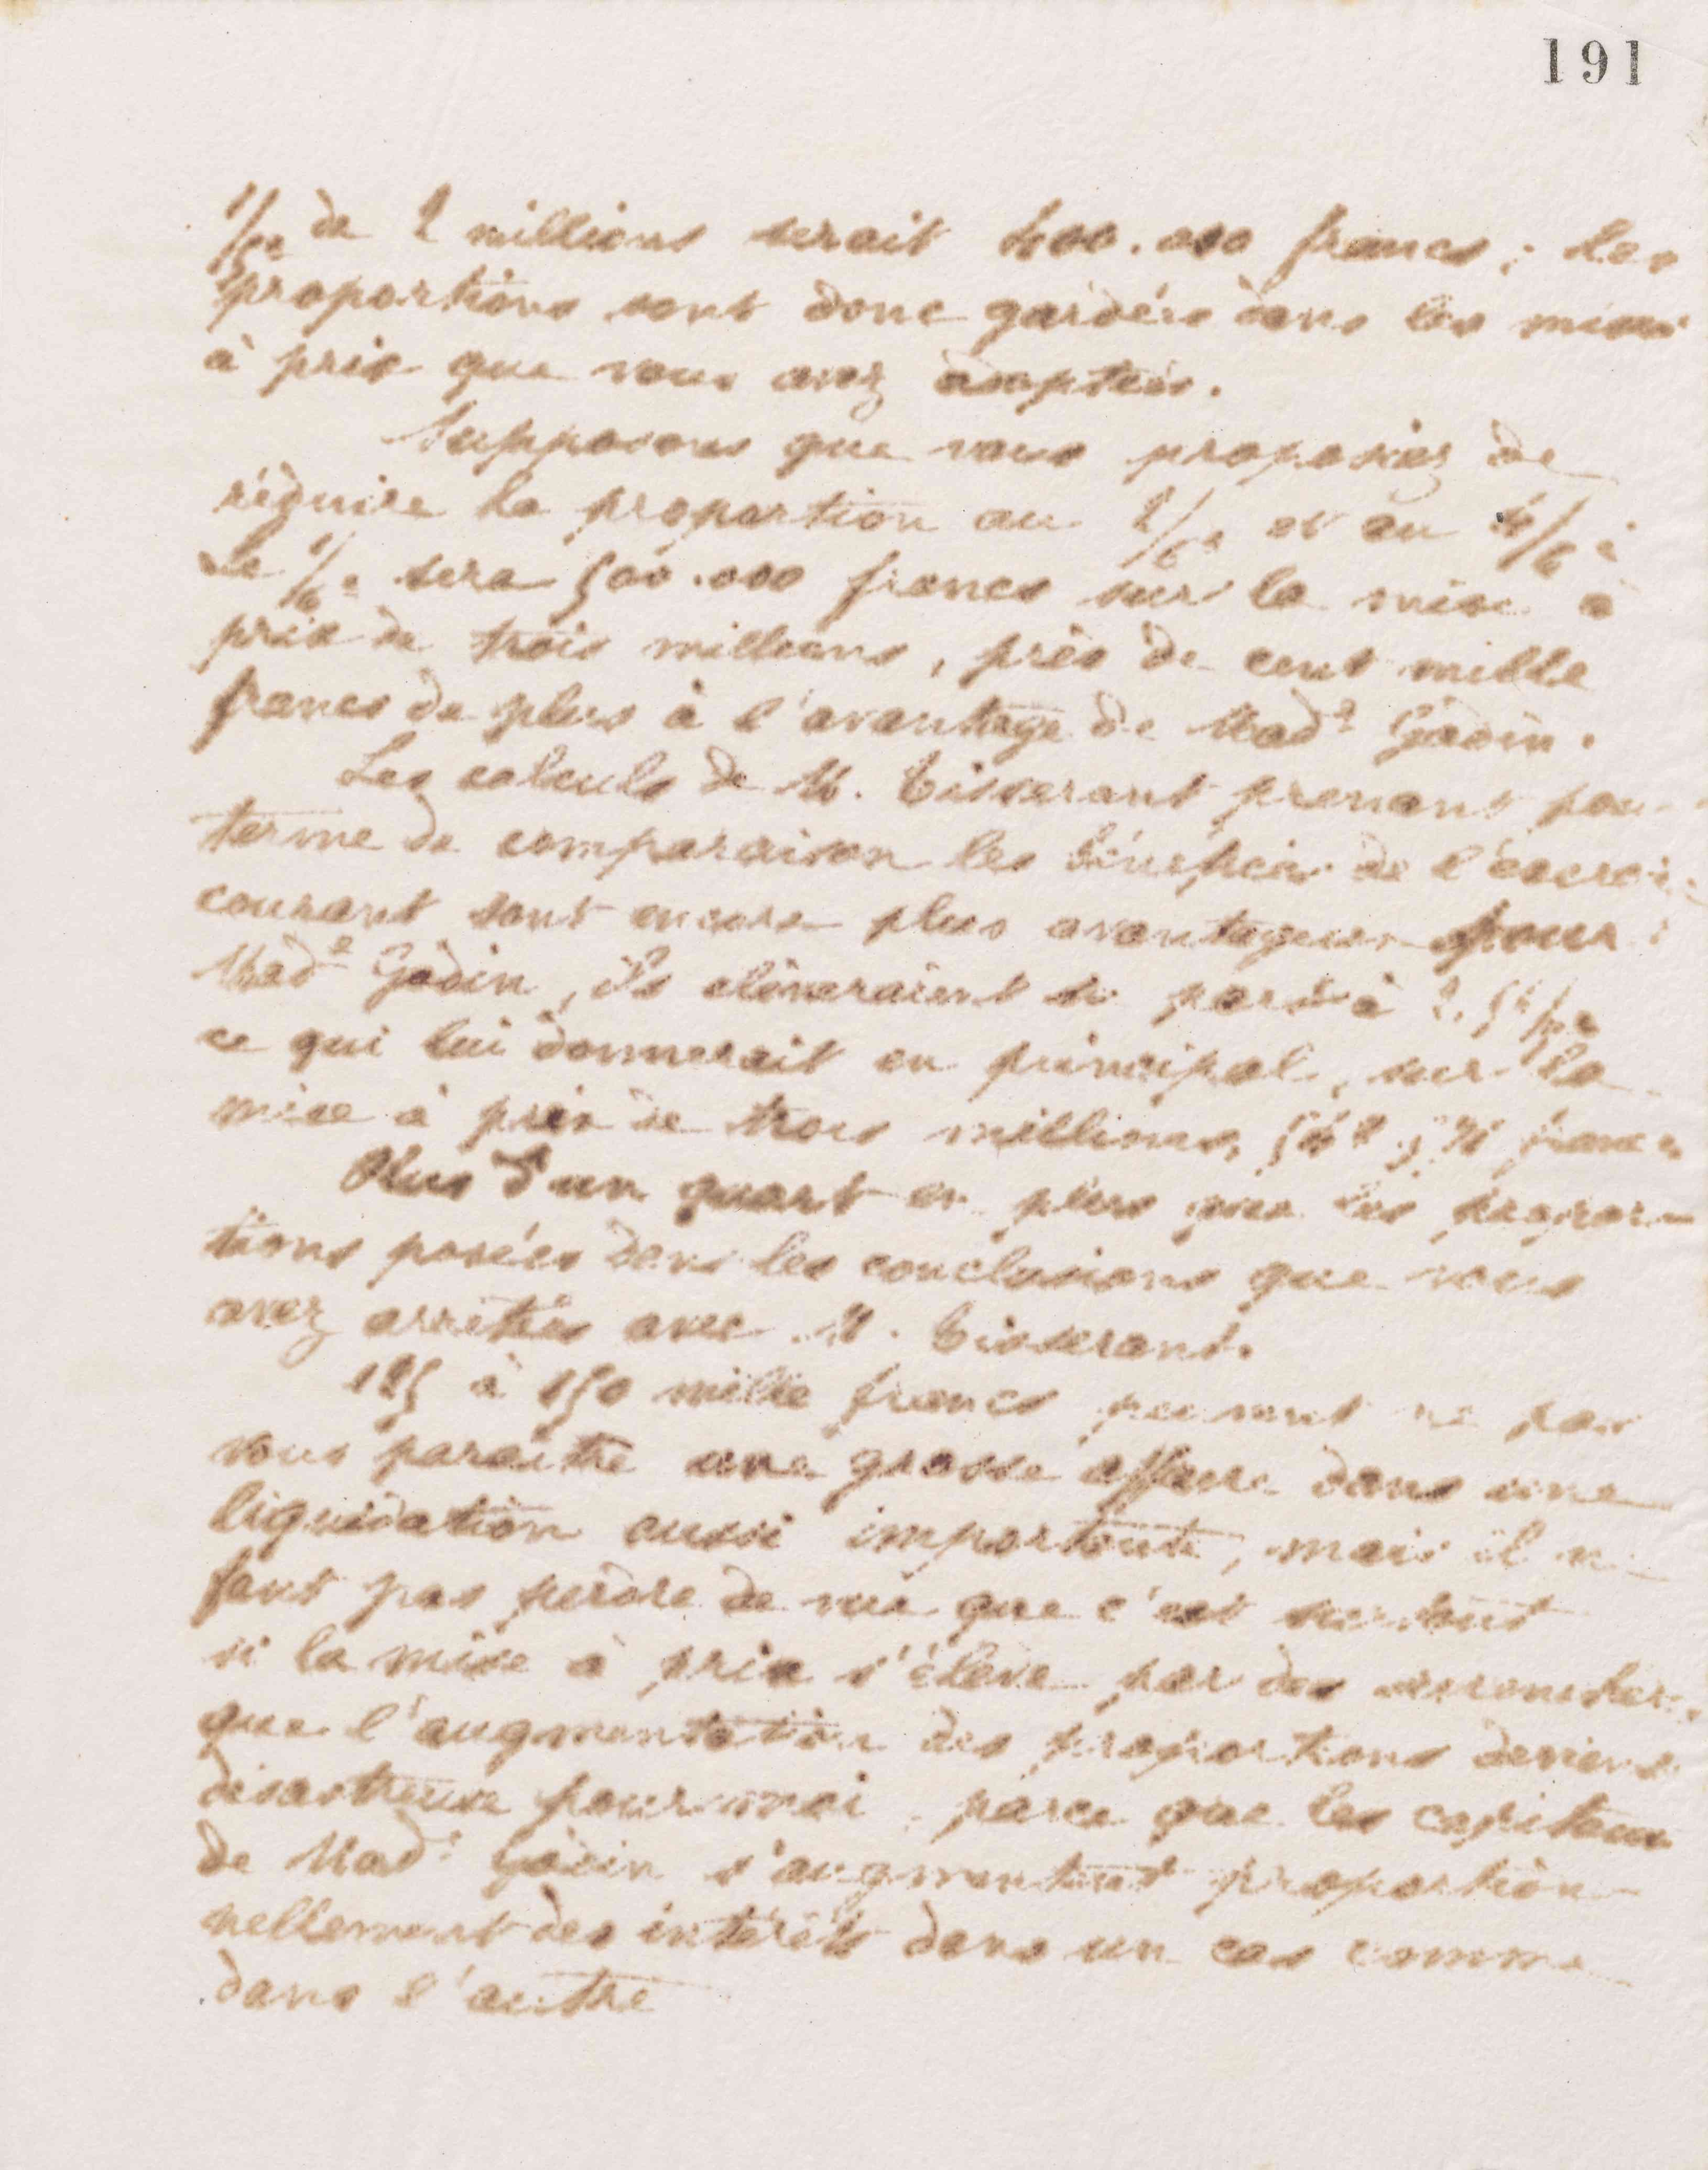 191
1/5e de 2 millions serait 400.000 francs ; les
proportions sont donc gardées dans les mises
à prix que vous avez adoptées.
Supposons que vous proposiez de
réduire la proportion au 1/6e et au 4/6e
Le 1/6e sera 500.000 francs sur la mise à
prix de trois millions, près de cent mille
francs de plus à l'avantage de Made Godin.
Les calculs de M. Tisserant prenant pour
terme de comparaison les bénéfices de l'exercice
courant sont encore plus avantageux pour
Made Godin, ils élèveraient sa part à
ce qui lui donnerait en principal, sur la
mise à prix de trois millions, francs
Plus d'un quart en plus que les propor-
tions posées dans les conclusions que vous
avez arrêtées avec M. Tisserant.
125 à 150 mille francs peuvent ne pas
vous paraître une grosse affaire dans une
liquidation aussi importante, mais il ne
faut pas perdre de vue que c'est surtout
si la mise à prix s'élève par des
que l'augmentation des proportions devient
désastreuse pour moi parce que les capitaux
de Made Godin s'augmentent proportion-
nellement des intérêts dans un cas comme
dans l'autre